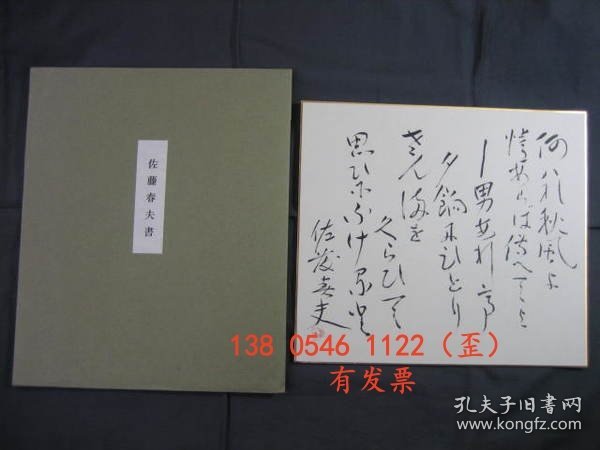 佐藤春夫書
あハれ秋風よ
情あらば傳へてよ
ー男ありて
夕餉にひとり
さんまを
くらひて
思ひにふける と
佐藤春夫
138 0546 1122（歪）
有发票
孔夫子旧书网
www.kongfz.com